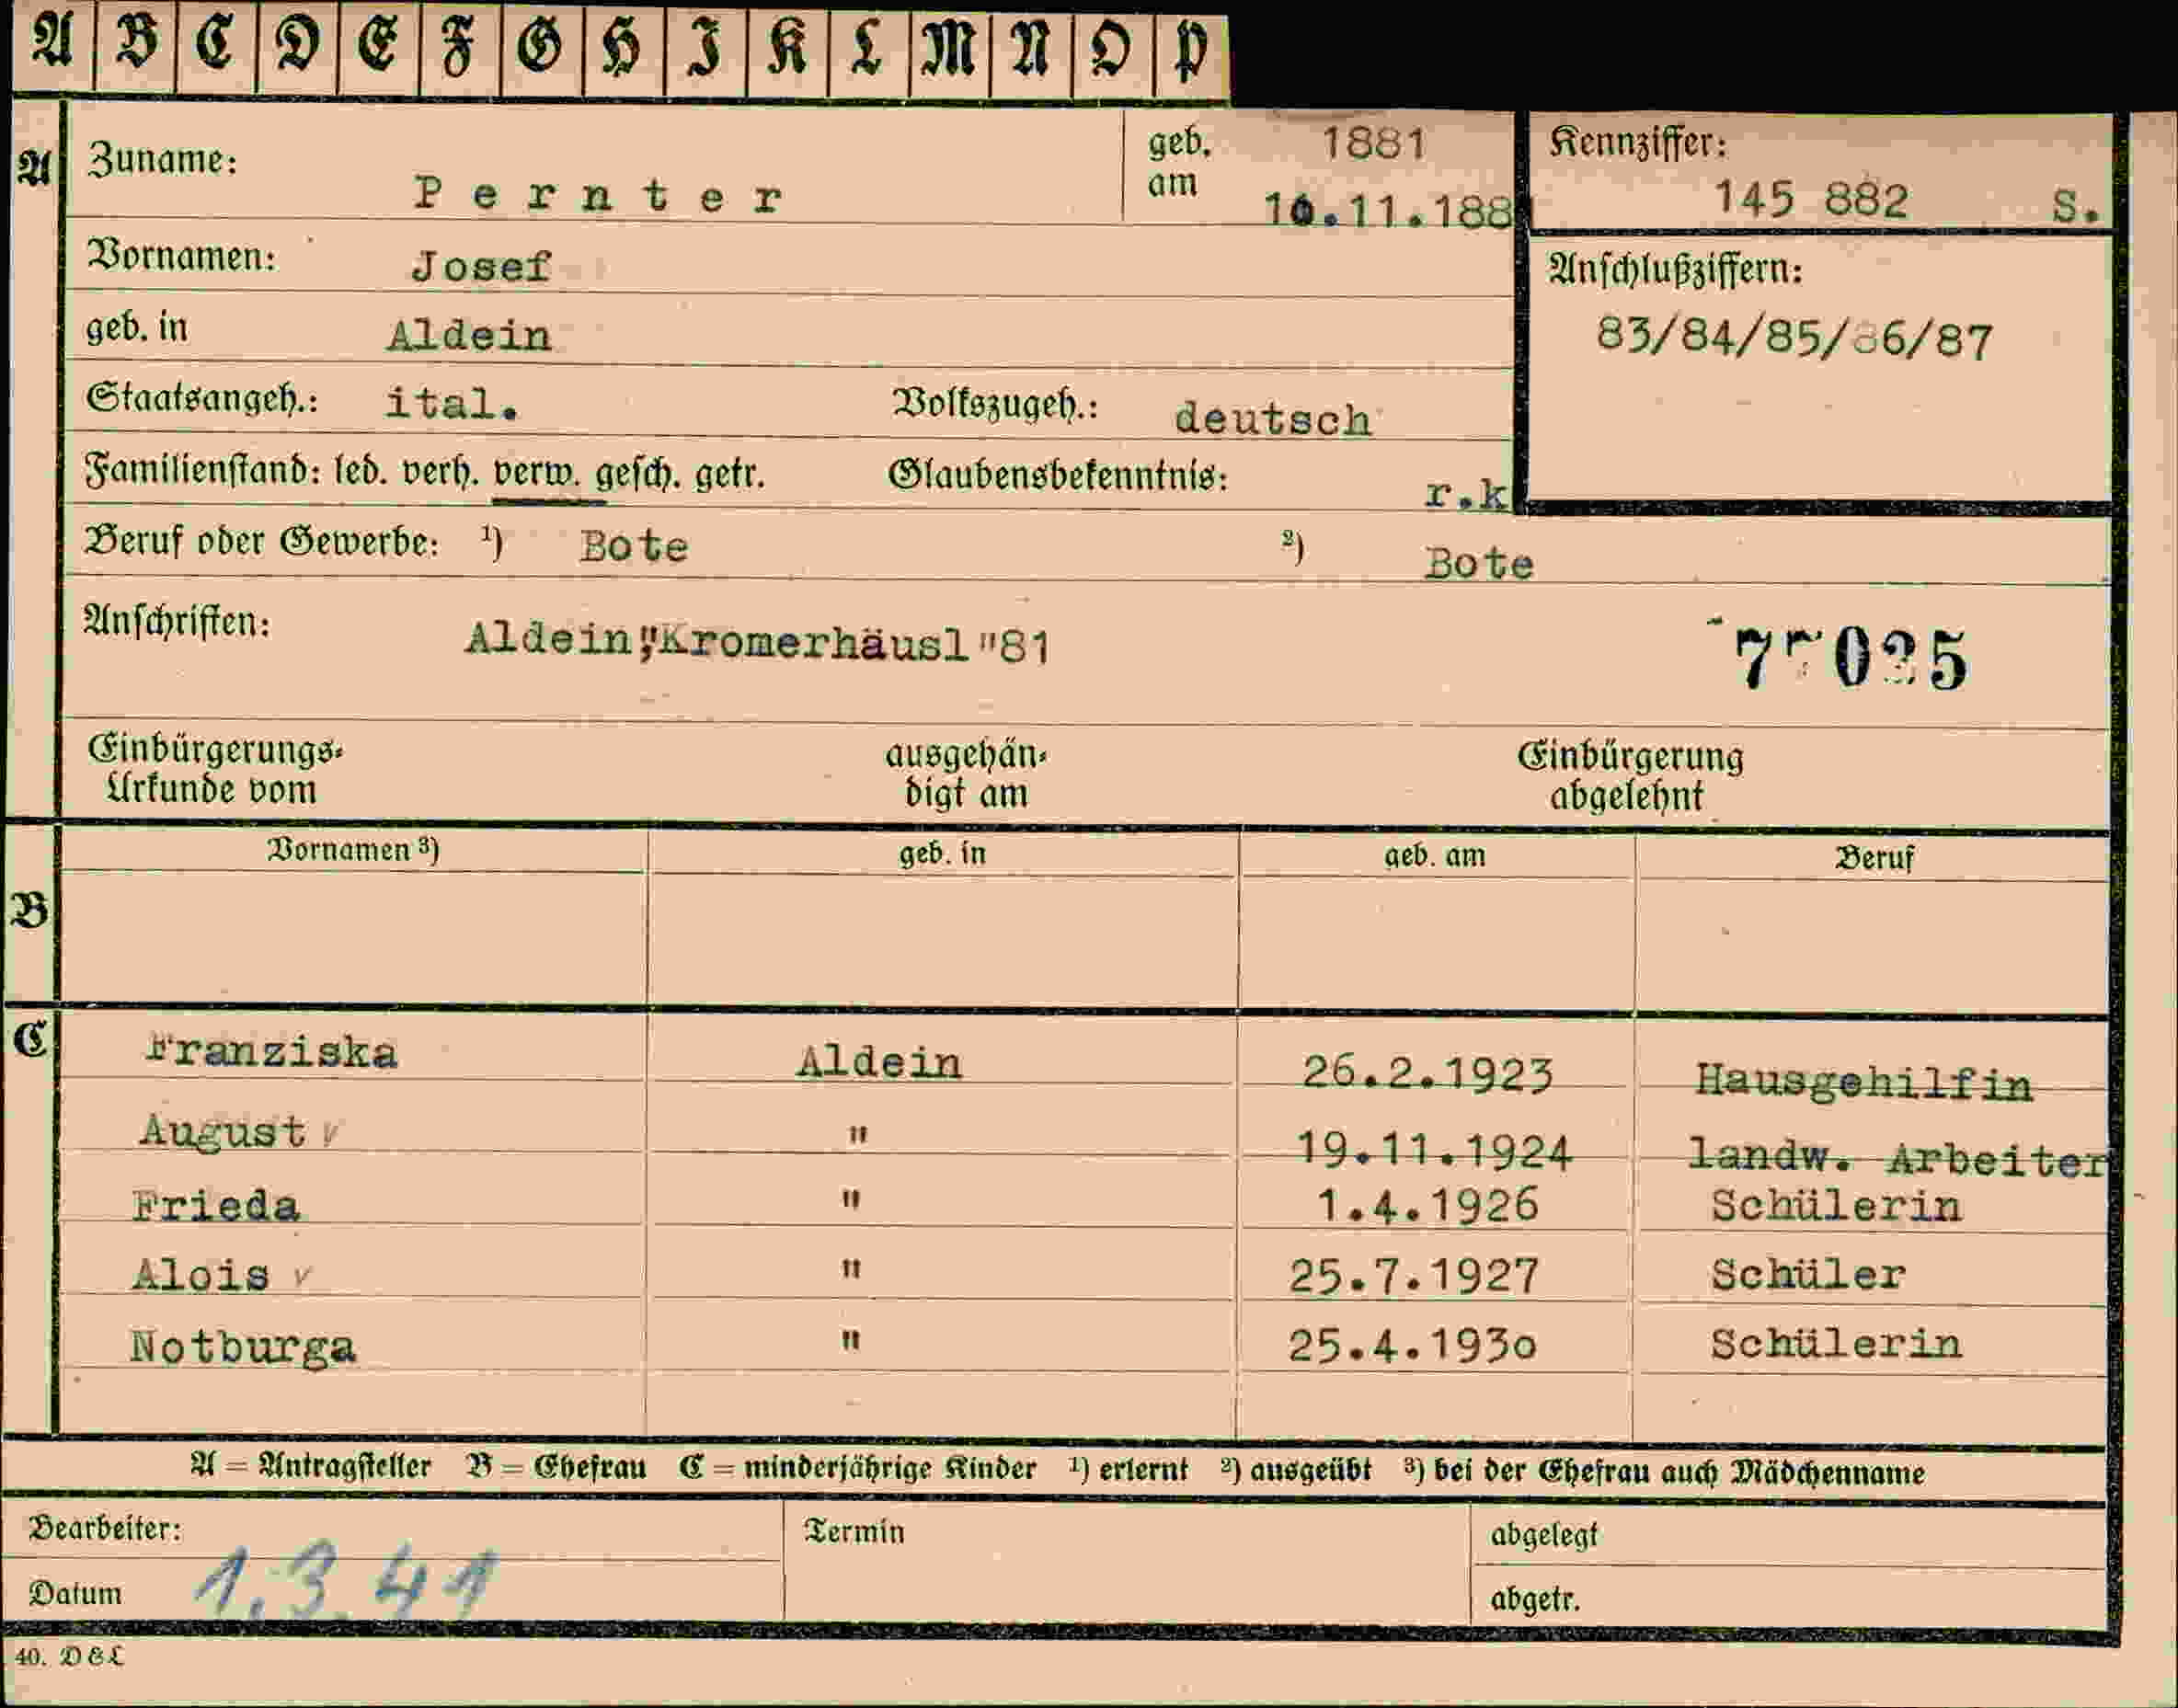 A B C D E F G H I K L M N O P
A Zuname: Pernter geb. am 1881 10.11.188 Kennziffer: 145 882 S.
Vornamen: Josef Anschlußziffern:
geb. in Aldein 83/84/85/86/87
Staatsangeh.: ital. Volkszugeh.: deutsch
Familienstand: led. verh. verw. gesch. getr. Glaubensbekenntnis: r.k
Beruf oder Gewerbe: 1) Bote 2) Bote
Anschriften: Aldein,"Kromerhäusl"81
Einbürgerungs- ausgehän- Einbürgerung
Urkunde vom digt am abgelehnt
Vornamen 3) geb. in geb. am Beruf
B
C Franziska Aldein 26.2.1923 Hausgehilfin
August " 19.11.1924 landw. Arbeiter
Frieda " 1.4.1926 Schülerin
Alois " 25.7.1927 Schüler
Notburga " 25.4.1930 Schülerin
A = Antragsteller B = Ehefrau C = minderjährige Kinder 1) erlernt 2) ausgeübt 3) bei der Ehefrau auch Mädchenname
Bearbeiter: Termin abgelegt
Datum 1.3.41 abgetr.
40. D&L